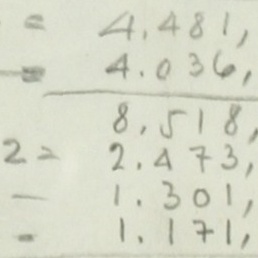 = 4.481,
- 4.036,
8.518,
2= 2.473,
- 1.301,
- 1.171,